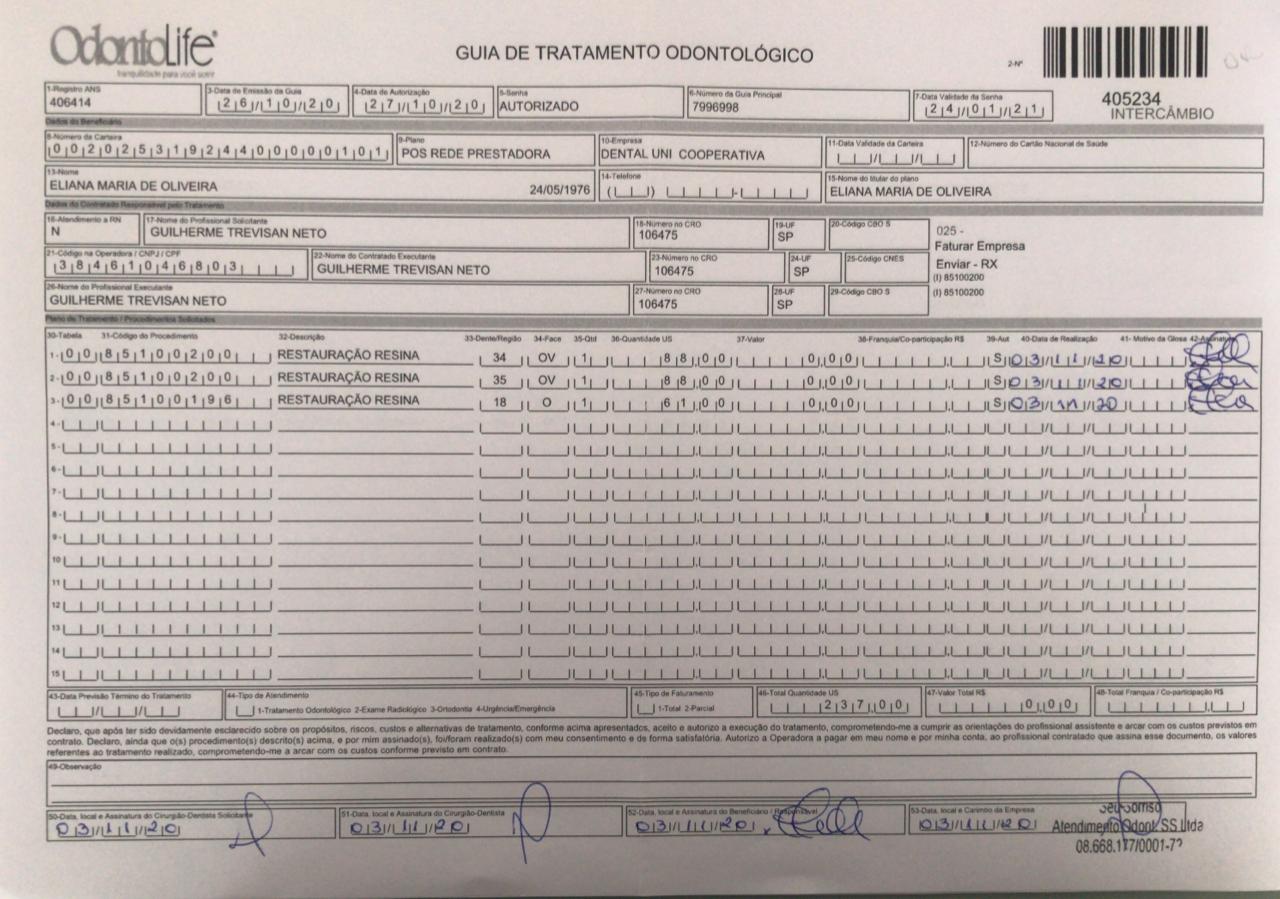 OdontoLife
tranquilidade para você sorrir
GUIA DE TRATAMENTO ODONTOLÓGICO
2-Nº
405234
INTERCÂMBIO
1-Registro ANS
406414
3-Data de Emissão da Guia
26/10/20
4-Data de Autorização
27/10/20
5-Senha
AUTORIZADO
6-Número da Guia Principal
7996998
7-Data Validade da Senha
24/01/21
Dados do Beneficiário
8-Número da Carteira
00202531924400000101
9-Plano
POS REDE PRESTADORA
10-Empresa
DENTAL UNI COOPERATIVA
11-Data Validade da Carteira
12-Número do Cartão Nacional de Saúde
13-Nome
ELIANA MARIA DE OLIVEIRA 24/05/1976
14-Telefone
15-Nome do titular do plano
ELIANA MARIA DE OLIVEIRA
Dados do Contratado Responsável pelo Tratamento
16-Atendimento a RN
N
17-Nome do Profissional Solicitante
GUILHERME TREVISAN NETO
18-Número no CRO
106475
19-UF
SP
20-Código CBO S
025 -
Faturar Empresa
Enviar - RX
(I) 85100200
(I) 85100200
21-Código na Operadora / CNPJ / CPF
38461046803
22-Nome do Contratado Executante
GUILHERME TREVISAN NETO
23-Número no CRO
106475
24-UF
SP
25-Código CNES
26-Nome do Profissional Executante
GUILHERME TREVISAN NETO
27-Número no CRO
106475
28-UF
SP
29-Código CBO S
Plano de Tratamento / Procedimentos Solicitados
30-Tabela 31-Código do Procedimento 32-Descrição 33-Dente/Região 34-Face 35-Qtd 36-Quantidade US 37-Valor 38-Franquia/Co-participação R$ 39-Aut 40-Data de Realização 41- Motivo da Glosa 42-Assinatura
1- 00 85100200 RESTAURAÇÃO RESINA 34 OV 1 88,00 0,00 S 03/11/20
2- 00 85100200 RESTAURAÇÃO RESINA 35 OV 1 88,00 0,00 S 03/11/20
3- 00 85100196 RESTAURAÇÃO RESINA 18 O 1 61,00 0,00 S 03/11/20
4-
5-
6-
7-
8-
9-
10
11
12
13
14
15
43-Data Previsão Término do Tratamento
44-Tipo de Atendimento
1-Tratamento Odontológico 2-Exame Radiológico 3-Ortodontia 4-Urgência/Emergência
45-Tipo de Faturamento
1-Total 2-Parcial
46-Total Quantidade US
237,00
47-Valor Total R$
0,00
48-Total Franquia / Co-participação R$
Declaro, que após ter sido devidamente esclarecido sobre os propósitos, riscos, custos e alternativas de tratamento, conforme acima apresentados, aceito e autorizo a execução do tratamento, comprometendo-me a cumprir as orientações do profissional assistente e arcar com os custos previstos em
contrato. Declaro, ainda que o(s) procedimento(s) descrito(s) acima, e por mim assinado(s), foi/foram realizado(s) com meu consentimento e de forma satisfatória. Autorizo a Operadora a pagar em meu nome e por minha conta, ao profissional contratado que assina esse documento, os valores
referentes ao tratamento realizado, comprometendo-me a arcar com os custos conforme previsto em contrato.
49-Observação
50-Data, local e Assinatura do Cirurgião-Dentista Solicitante
03/11/20
51-Data, local e Assinatura do Cirurgião-Dentista
03/11/20
52-Data, local e Assinatura do Beneficiário / Responsável
03/11/20
53-Data, local e Carimbo da Empresa
03/11/20
Atendimento Odont. SS Ltda